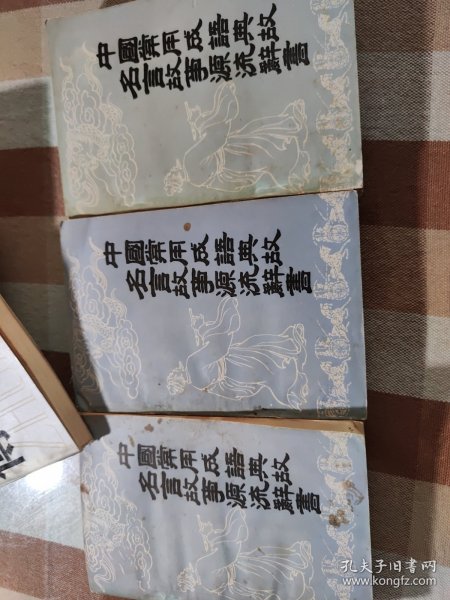 中國常用成語典故
名言故事源流辭書
中國常用成語典故
名言故事源流辭書
中國常用成語典故
名言故事源流辭書
孔夫子旧书网
www.kongfz.com